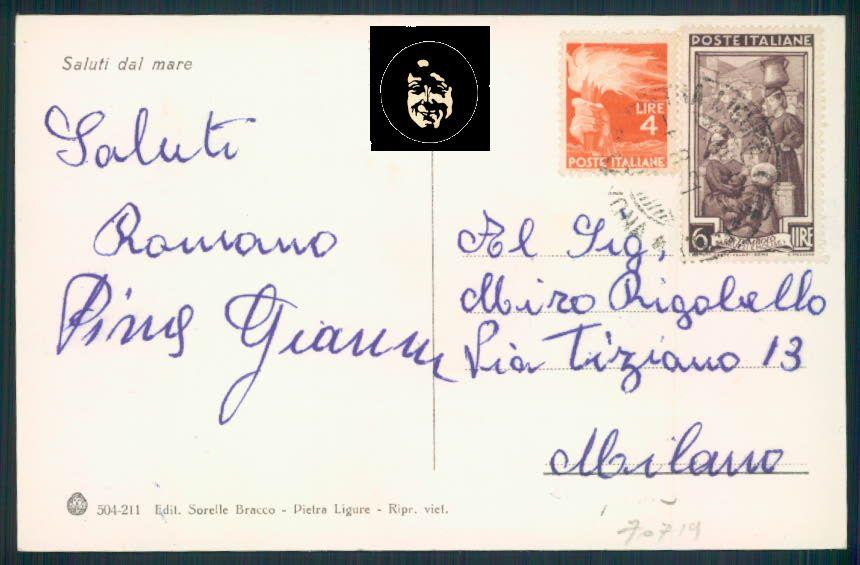 Saluti dal mare
Saluti
Romano
Pina Gianni
LIRE
4
POSTE ITALIANE
POSTE ITALIANE
6 LIRE
Al Sig.
Miro Rigobello
Via Tiziano 13
Milano
504-211 Edit. Sorelle Bracco - Pietra Ligure - Ripr. viet.
70719